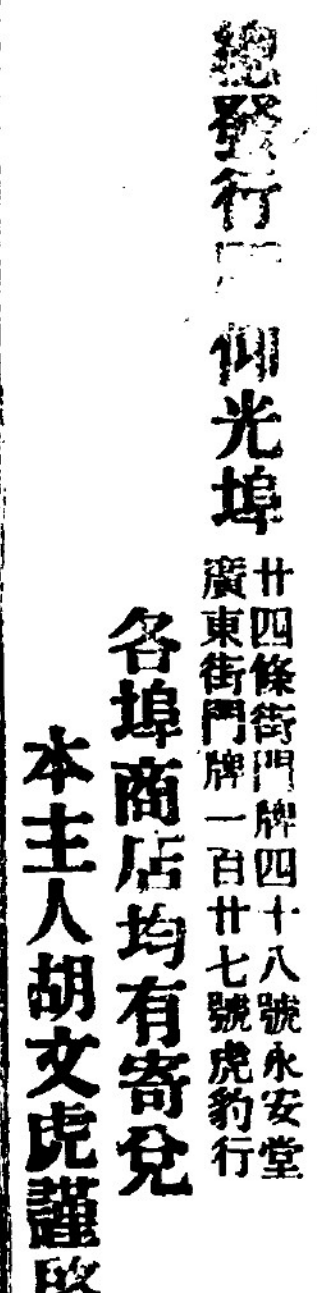 總發行所 仰光埠
廿四條街門牌四十八號永安堂
廣東街門牌一百廿七號虎豹行
各埠商店均有寄兌
本主人胡文虎謹啟